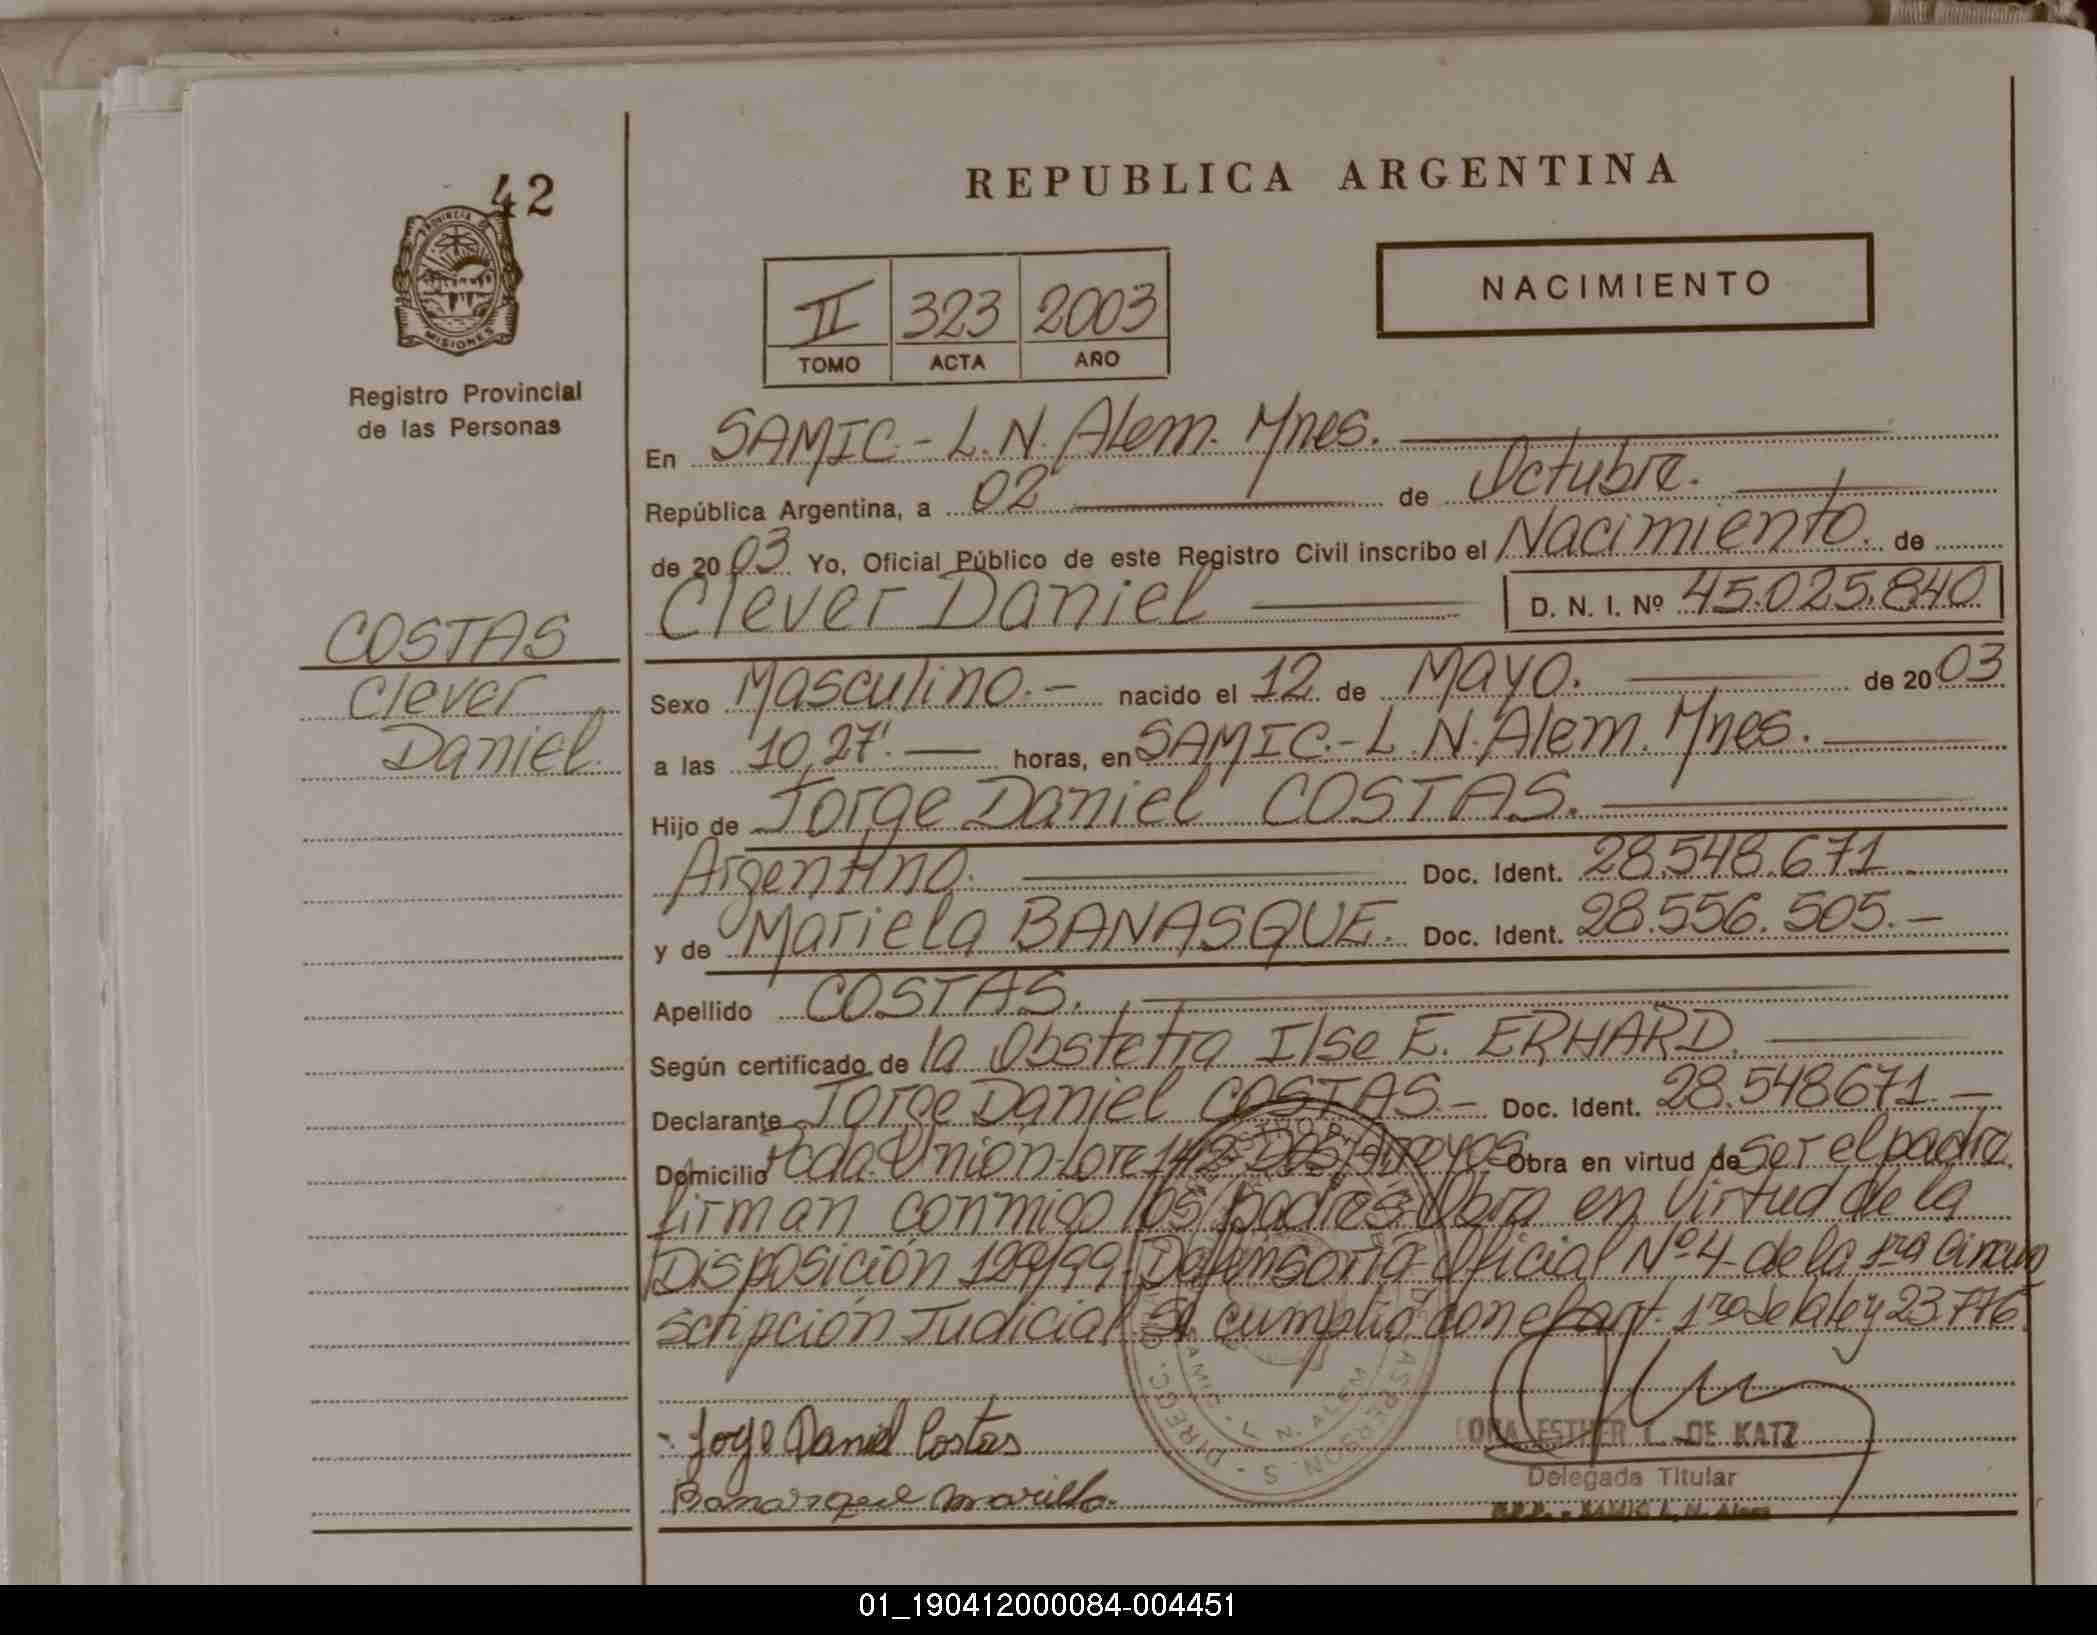 42
PROVINCIA DE
MISIONES
Registro Provincial
de las Personas
COSTAS
Clever
Daniel.
REPUBLICA ARGENTINA
NACIMIENTO
II 323 2003
TOMO ACTA AÑO
En SAMIC.- L.N. Alem. Mnes.
República Argentina, a 02 de Octubre.
de 2003 Yo, Oficial Público de este Registro Civil inscribo el Nacimiento. de
Clever Daniel D. N. I. Nº 45.025.840
Sexo Masculino.- nacido el 12 de MAYO. de 2003
a las 10,27'. horas, en SAMIC.- L.N. Alem. Mnes.
Hijo de Jorge Daniel COSTAS.
Argentino. Doc. Ident. 28.548.671
y de Mariela BANASQUE. Doc. Ident. 28.556.505.-
Apellido COSTAS.
Según certificado de la Obstetra Ilse E. ERHARD.
Declarante Jorge Daniel COSTAS.- Doc. Ident. 28.548671.-
Domicilio Pcda. Unión-Lote 142-Dos Arroyos Obra en virtud de ser el padre.
firman conmigo los padres. Obra en Virtud de la
Disposición 129/99. Defensoria Oficial Nº 4- de la 1ra Circun
scripción Judicial. Se cumplió con el art. 1ro de la ley 23.776.
Jorge Daniel Costas
Banasque Mariela.
ESTHER L. DE KATZ
Delegada Titular
R.P.P. - SAMIC L. N. Alem
DIREC. PERSONAS
SAMIC - L. N. ALEM
01_190412000084-004451